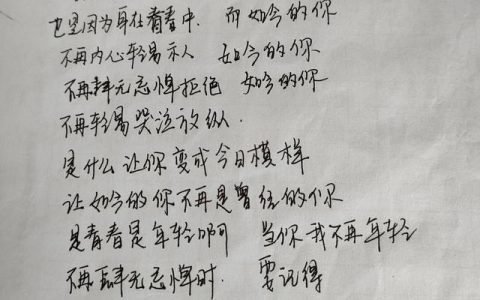 也是因为身在青春中. 而如今的你
不再内心轻易示人 如今的你
不再肆无忌惮拒绝 如今的你
不再轻易哭泣放纵.
是什么让你变成今日模样
让如今的你不再是曾经的你
是青春是年轻啊 当你我不再年轻
不再肆无忌惮时. 要记得